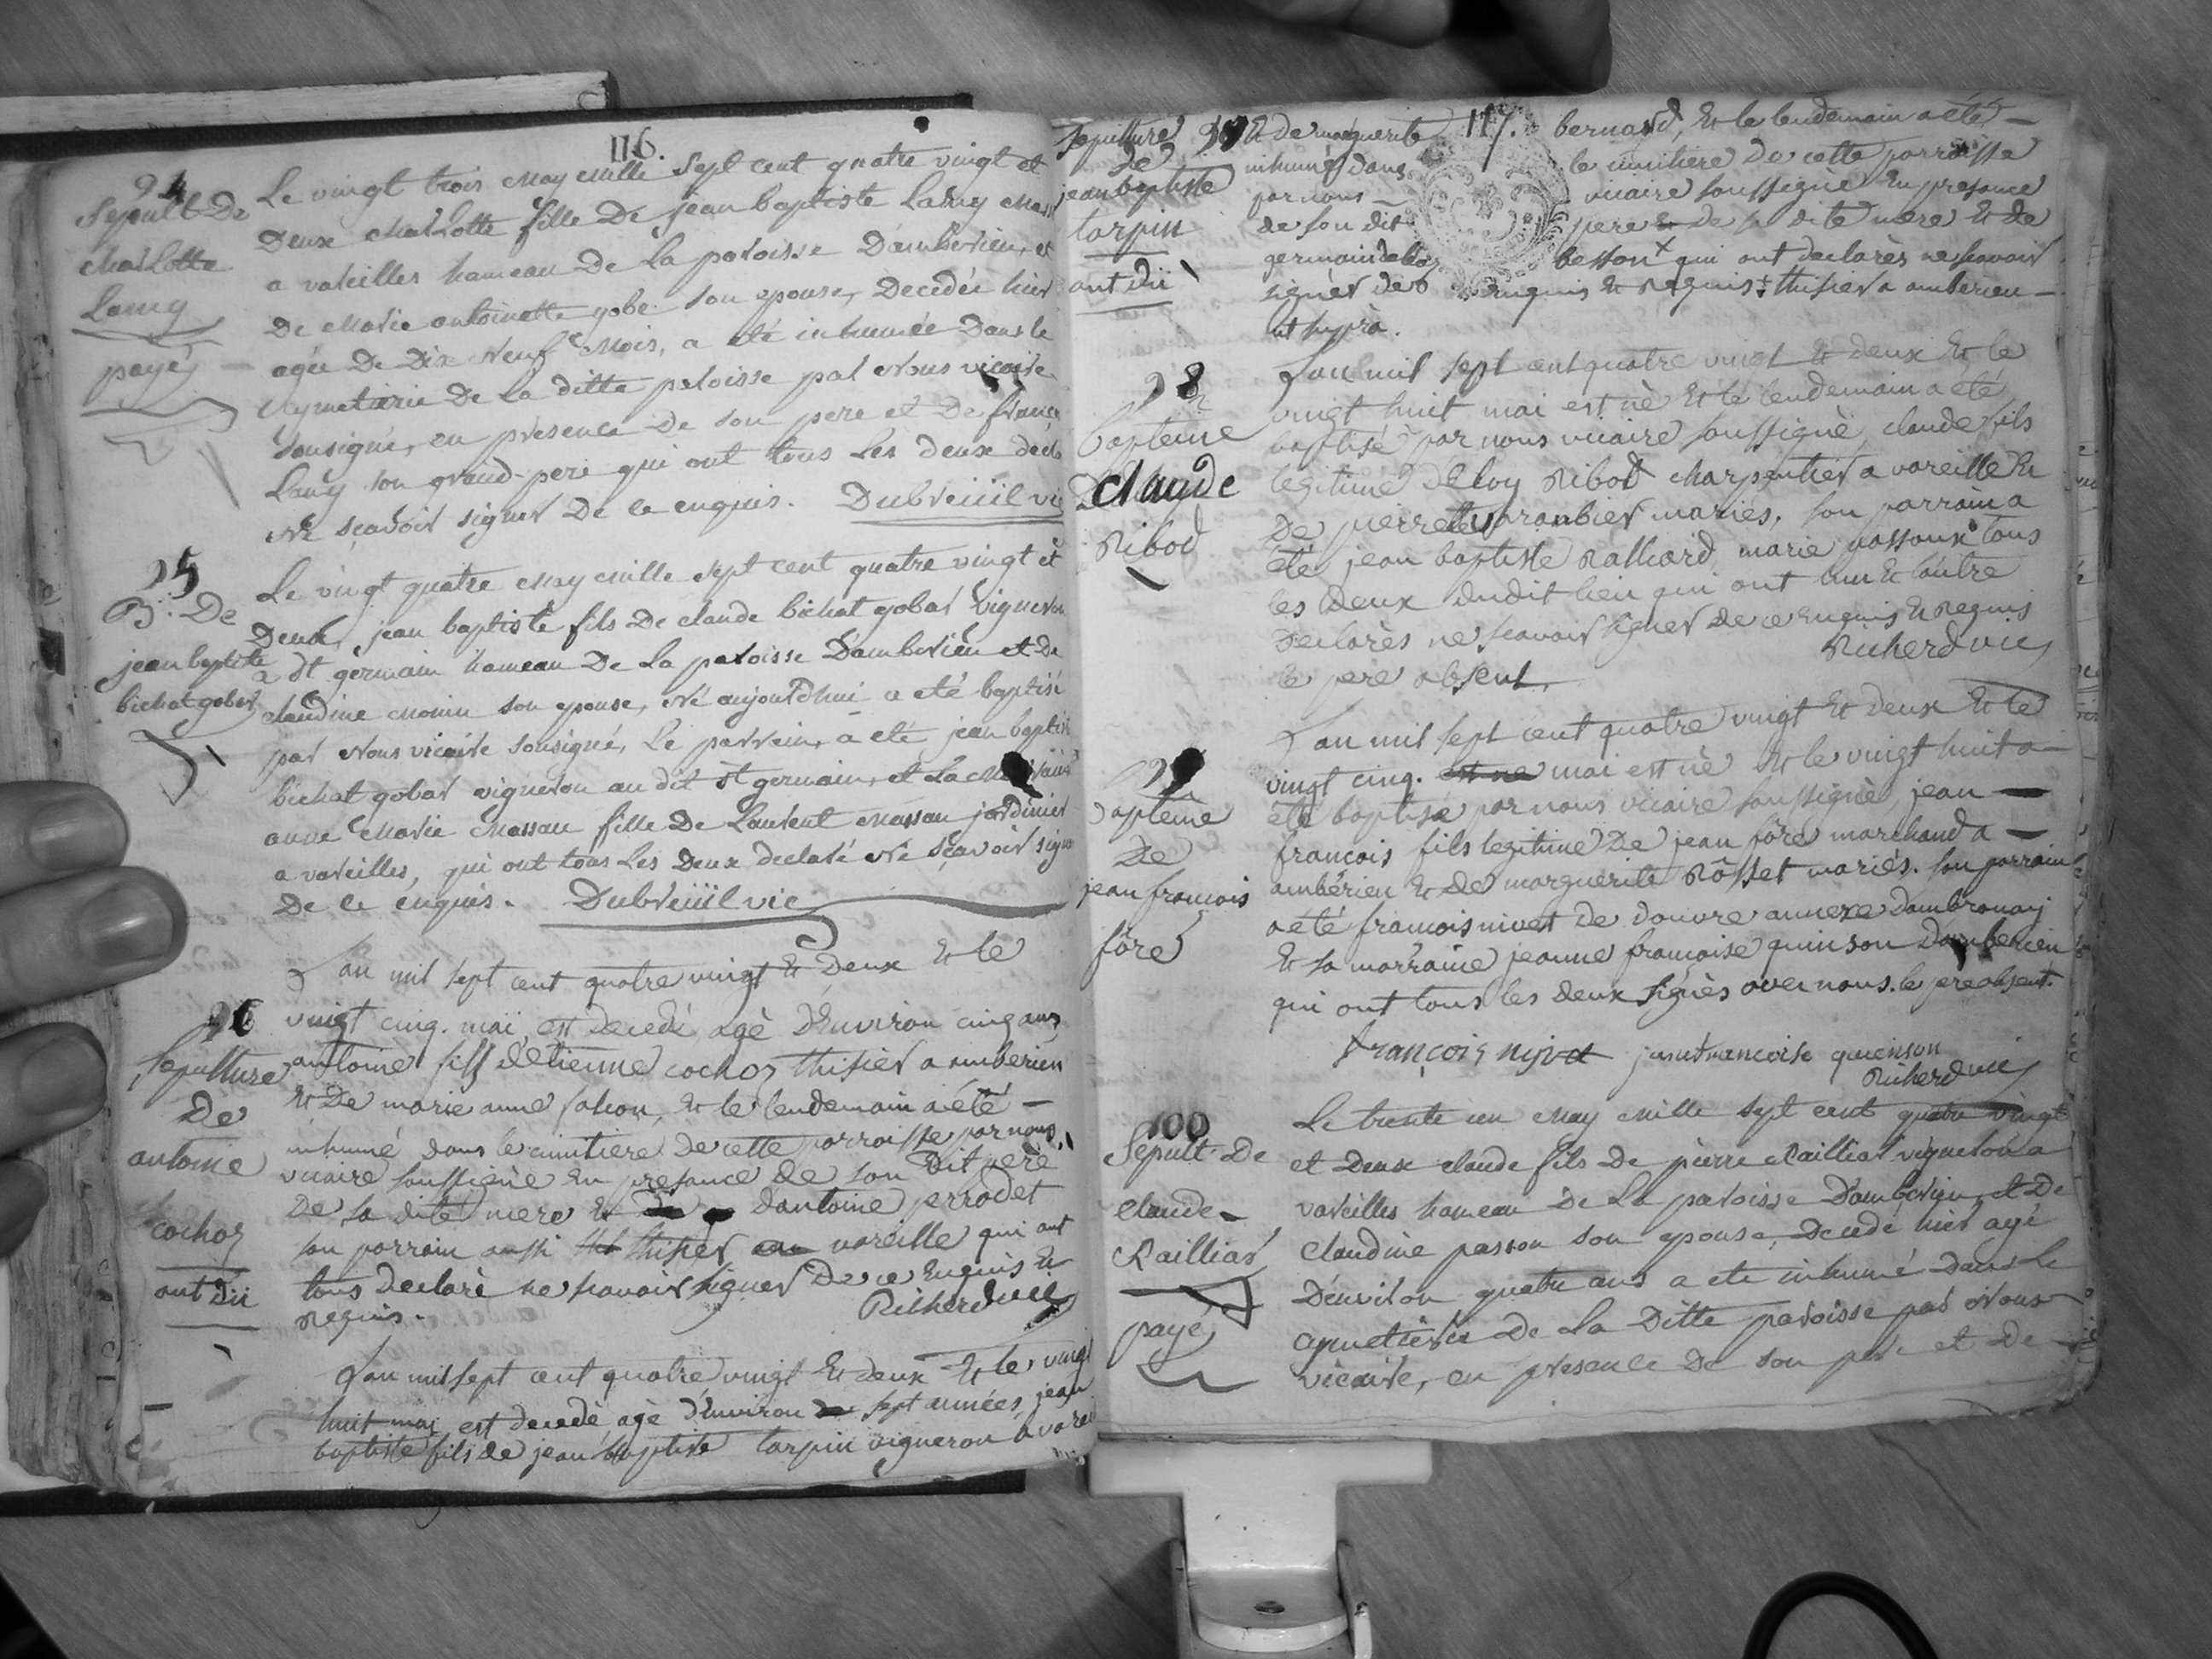 116.
94
Sepult De
charlotte
Lamy
payé
Le vingt trois may mille sept cent quatre vingt et
Deux charlotte fille De jean baptiste Lamy
a vareilles hameau De La paroisse D'amberieu, et
De marie antoinette gobe son epouse, Decedée hier
agée De Dix neuf mois, a été inhumée Dans le
cymetiere De La ditte paroisse par Nous vicaire
sousigné, en presence De son pere et De
Lamy son grand-pere qui ont tous Les deux
Ne sçavoir signer De ce enquis. Dubreüil vic
95
B. De
jean baptiste
bichat gobar
Le vingt quatre may mille sept cent quatre vingt et
Deux, jean baptiste fils De claude bichat gobar vigneron
a St germain hameau De La paroisse D'amberieu et De
claudine monin son epouse, Né aujourd'hui a eté baptisé
par Nous vicaire sousigné, Le parrein, a eté jean baptiste
bichat gobar vigneron au dit St germain, et La
anne marie massau fille De Laurent massau jardinier
a vareilles, qui ont tous Les Deux declaré Ne sçavoir signer
De ce enquis. Dubreüil vic
96
sepulture
De
antoine
cochoz
ont dû
L'an mil sept cent quatre vingt Et Deux Et le
vingt cinq. mai est decedé agé D'Environ cinq ans
antoine fils d'Etienne cochoz thisier a amberieu
Et De marie anne Et le lendemain a été
inhumé dans le cimitiere de cette parroisse par nous
vicaire soussigné En presance de son Dit père
De sa dite mere Et D'antoine perrodet
son parrain aussi thisier vareille qui ont
tous declaré ne scavoir signer De ce Enquis Et
Requis. Richerd vic
L'an mil sept cent quatre vingt Et deux Et le vingt
huit mai est decedé agé d'Environ sept années, jean
baptiste fils de jean baptiste tarpin vigneron a
117.
sepulture 97
De
jean baptiste
tarpin
ont dû
Et de marguerite bernard, Et le lendemain a été
inhumé dans le cimitiere de cette parroisse
par nous vicaire soussigné En presance
de son dit pere De sa dite mere Et de
germain besson x qui ont declarés ne scavoir
signer de Enquis Et Requis thisier a amberieu
ut suprà.
98
bapteme
De
claude
Ribod
L'an mil sept cent quatre vingt Et deux Et le
vingt huit mai est né Et le lendemain a été
baptisé par nous vicaire soussigné, claude fils
legitime D'Eloy Ribod charpentier a vareille Et
De pierrette mariés, son parrain a
été jean baptiste Ralliard, marie tous
les Deux dudit lieu qui ont l'un Et l'autre
Declarés ne scavoir signer De ce Enquis Et Requis
le pere absent. Richerd vic
bapteme
De
jean francois
fôre
L'an mil sept cent quatre vingt Et Deux Et le
vingt cinq. mai est né Et le vingt huit a
été baptisé par nous vicaire soussigné, jean
francois fils legitime De jean fôre marchand a
ambérieu Et de marguerite Rôsset mariés. son parrain
a été francois nivet de douvre annexe Dambronay
Et sa marraine jeanne francoise quinson Damberieu
qui ont tous les deux signés avec nous. le pere absent.
françois nivet quinson
Richerd vic
100
Sepult De
claude
Raillias
payé
Le trente un may mille sept cent quatre vingt
et Deux claude fils De pierre Raillias vigneron a
vareilles hameau De La paroisse D'amberieu, et De
claudine passon son epouse, Decedé hier agé
D'environ quatre ans a été inhumé Dans Le
cymetiere De La Ditte paroisse par Nous
vicaire, en presence De son pere et De